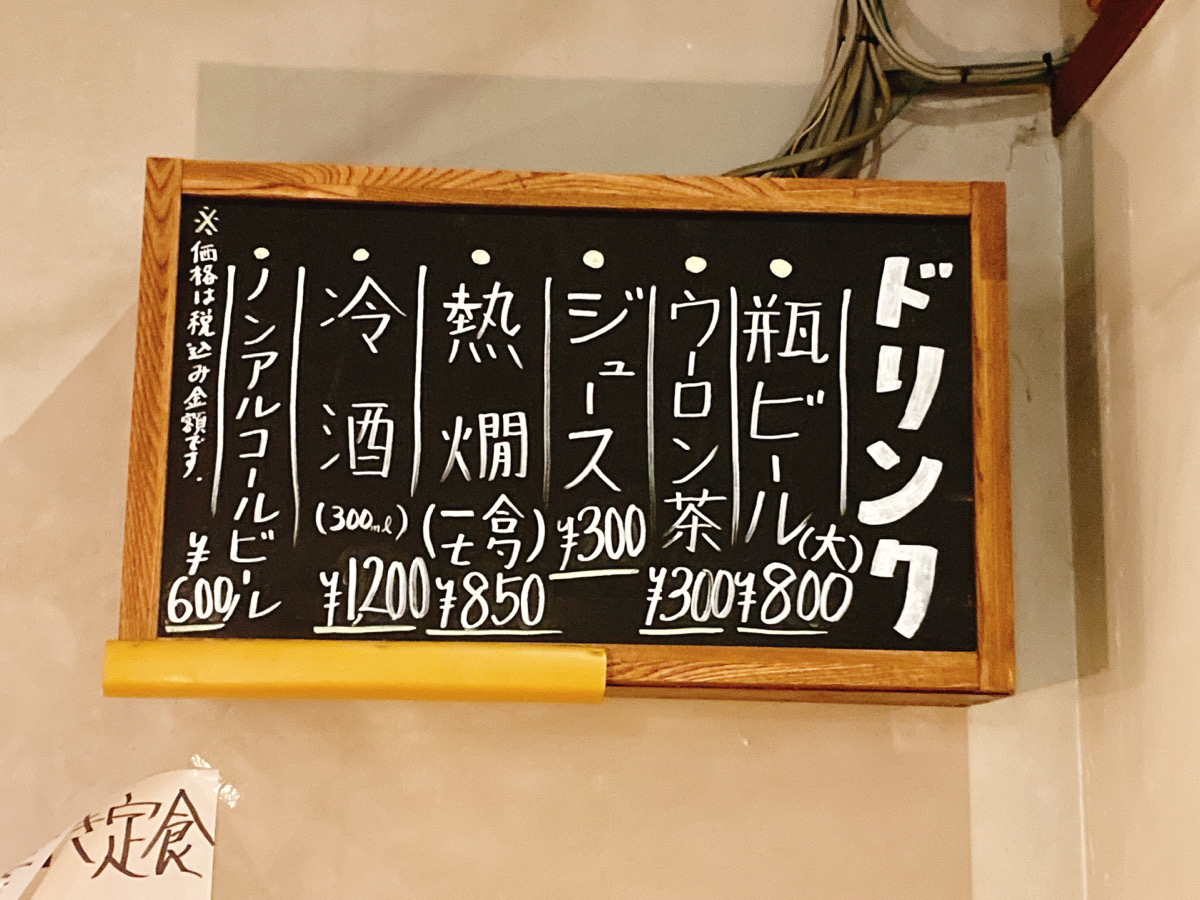 ドリンク
瓶ビール(大) ¥800
ウーロン茶 ¥300
ジュース ¥300
熱燗 (一合七勺) ¥850
冷酒 (300ml) ¥1,200
ノンアルコールビール ¥600
※価格は税込み金額です.
き定食